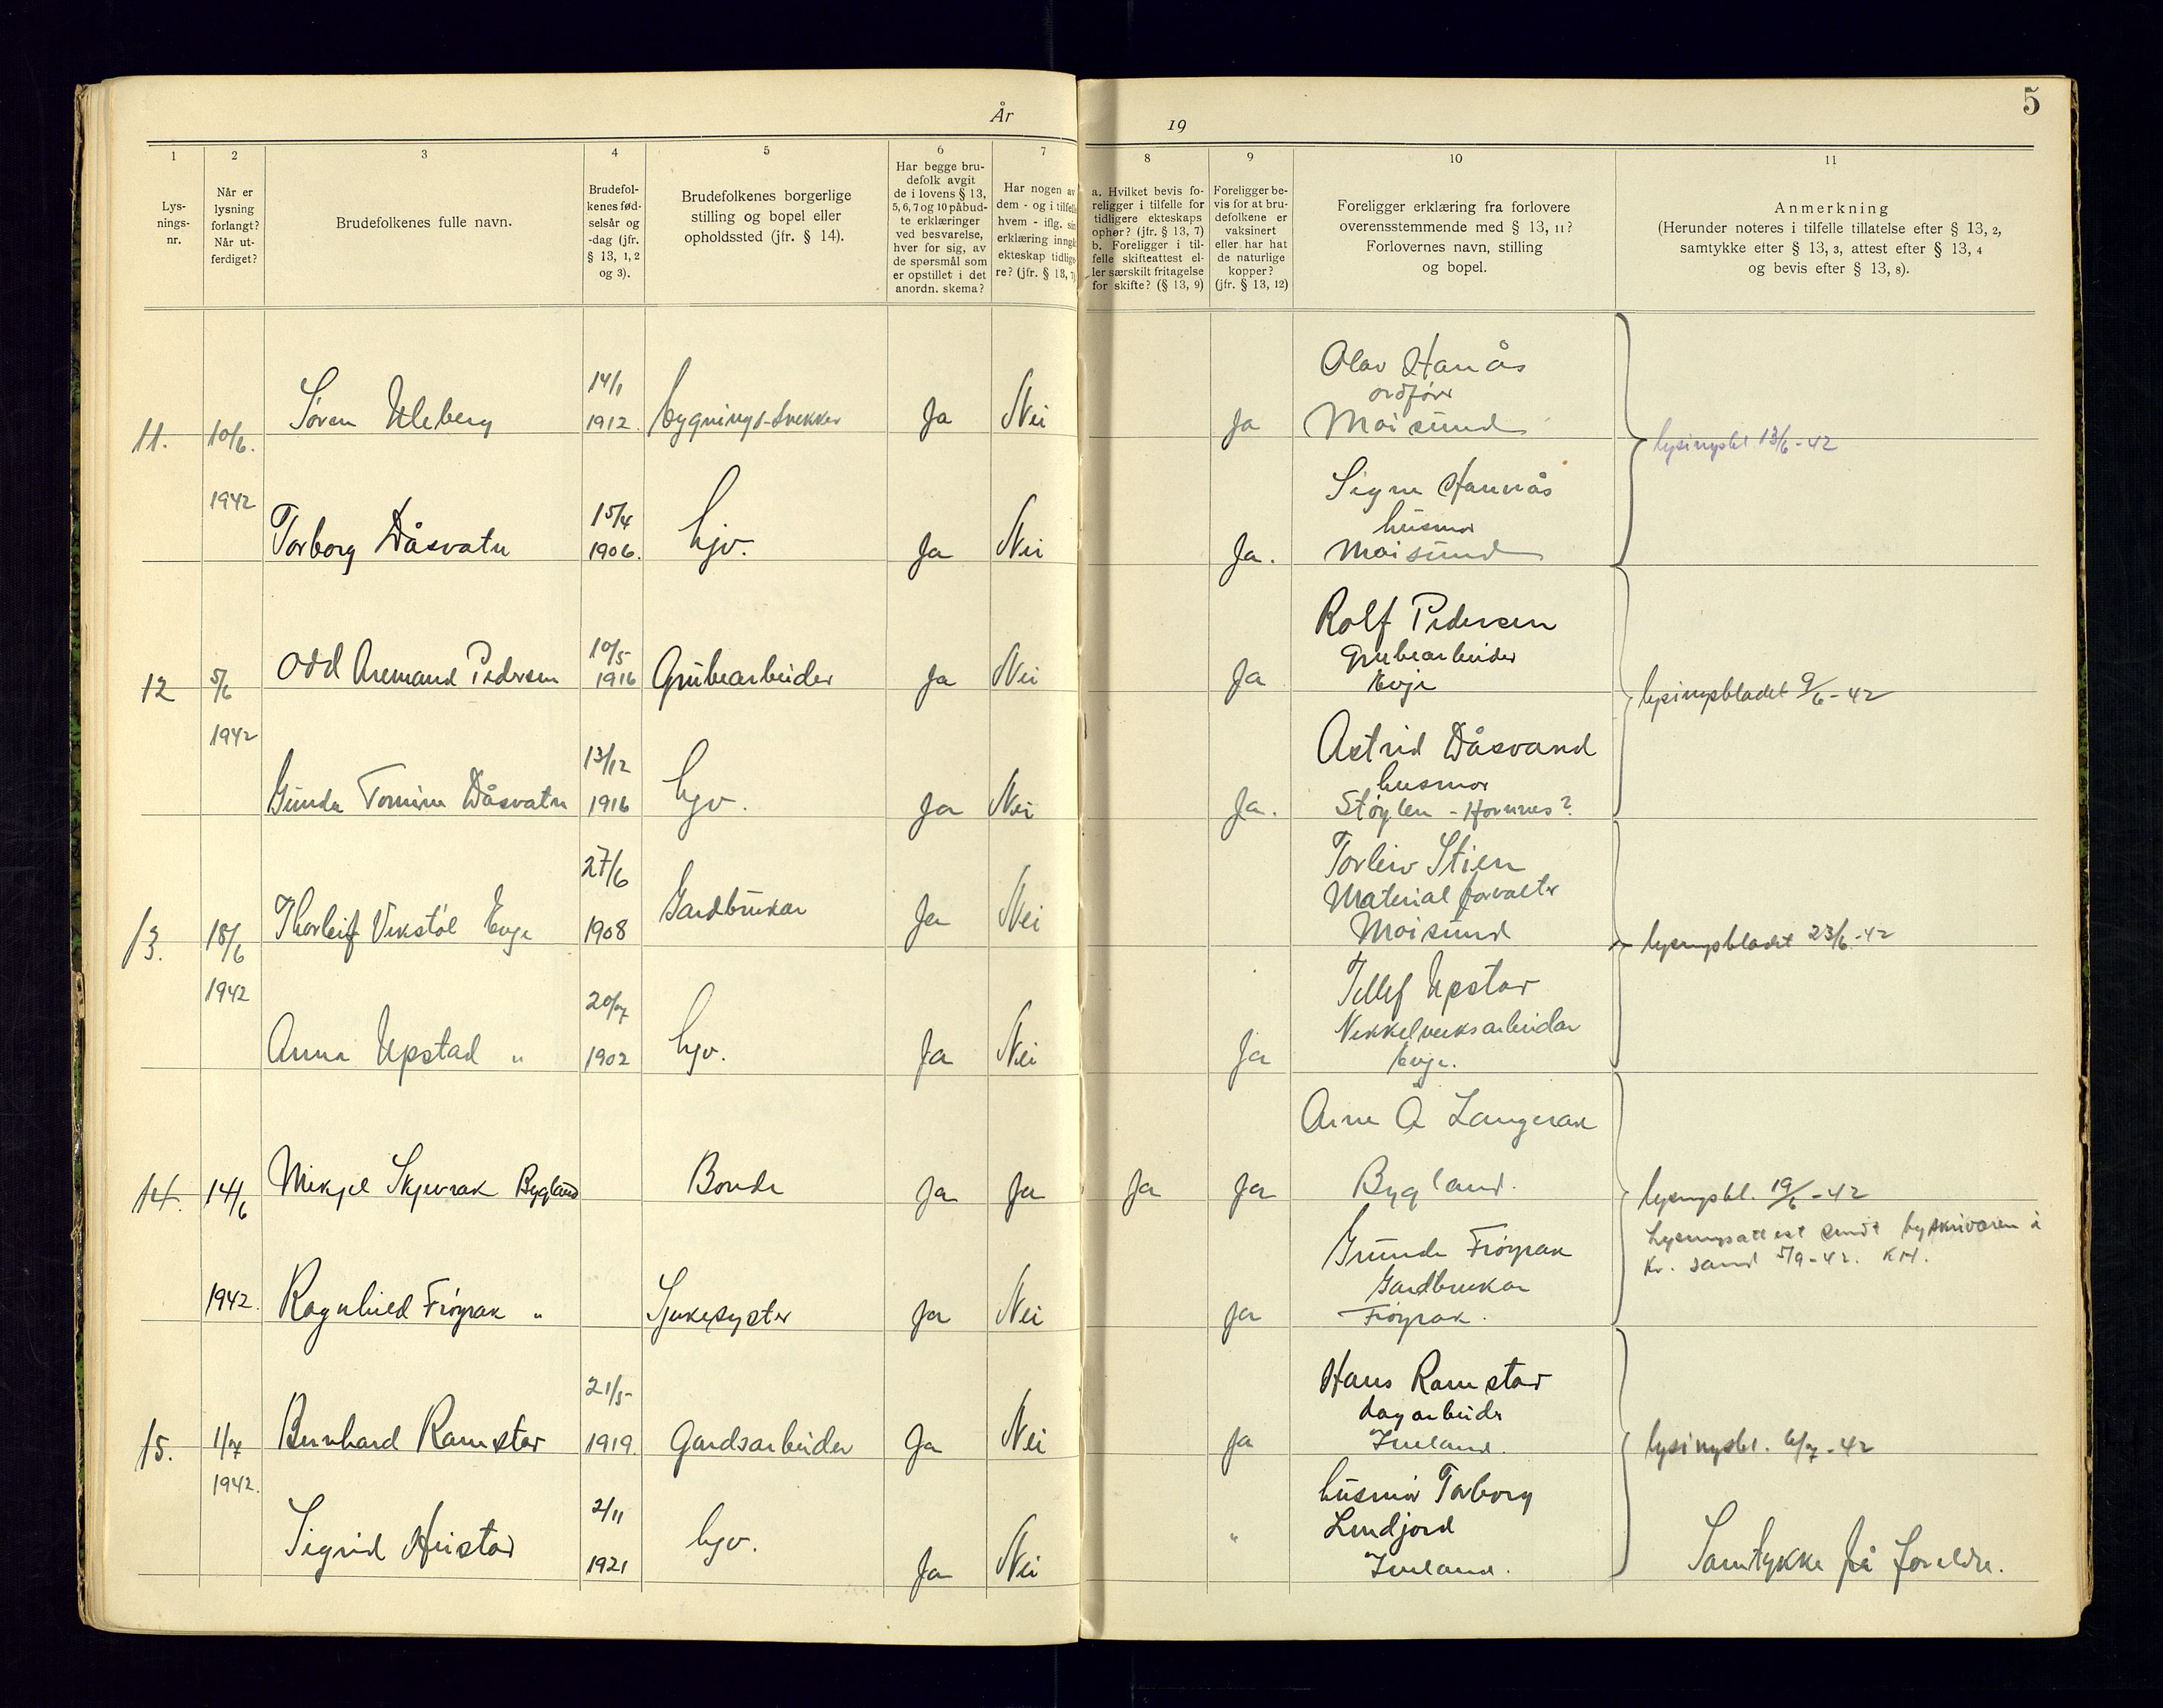 År
19
5
1
2
3
4
5
6
7
8
9
10
11
Lys-
nings-
nr.
Når er
lysning
forlangt?
Når ut-
ferdiget?
Brudefolkenes fulle navn.
Brudefol-
kenes fød-
selsår og
-dag (jfr.
§ 13, 1, 2
og 3).
Brudefolkenes borgerlige
stilling og bopel eller
opholdssted (jfr. § 14).
Har begge bru-
defolk avgit
de i lovens § 13,
5, 6, 7 og 10 påbud-
te erklæringer
ved besvarelse,
hver for sig, av
de spørsmål som
er opstillet i det
anordn. skema?
Har nogen av
dem - og i tilfelle
hvem - iflg. sin
erklæring inngå
ekteskap tidlige
re? (jfr. § 13, 7)
a. Hvilket bevis fo-
religger i tilfelle for
tidligere ekteskaps
ophør? (jfr. § 13, 7)
b. Foreligger i til-
felle skifteattest el-
ler særskilt fritagelse
for skifte? (§ 13, 9)
Foreligger be-
vis for at bru-
defolkene er
vaksinert
eller har hat
de naturlige
kopper?
(jfr. § 13, 12)
Foreligger erklæring fra forlovere
overensstemmende med § 13, 11?
Forlovernes navn, stilling
og bopel.
Anmerkning
(Herunder noteres i tilfelle tillatelse efter § 13, 2,
samtykke efter § 13, 3, attest efter § 13, 4
og bevis efter § 13, 8).
11. 10/6. Søren Uleberg 14/1 1912. bygnings-snekker Ja Nei Ja
Olav Hanås
ordfører
Moisund
lysingsbl. 13/6-42
1942 Torborg Dåsvatn 15/4 1906. hjv. Ja Nei Ja.
Signe Hannås
husmor
Moisund
12 5/6 Odd Aremand Pedersen 10/5 1916 Grubearbeider Ja Nei Ja
Rolf Pedersen
Grubearbeider
Evje
lysingsbladet 9/6-42
1942 Gunda Tomine Dåsvatn 13/12 1916 hjv. Ja Nei Ja.
Astrid Dåsvand
husmor
Støylen - Hornnes?
13. 18/6 Thorleif Vikstøl Evje 27/6 1908 Gardbrukar Ja Nei
Torleiv Stien
Material forvalter
Moisund
lysingsbladet 23/6-42
1942 Anna Upstad " 20/7 1902 hjv. Ja Nei Ja
Tellef Upstad
Nikkelverksarbeidar
Evje.
14. 14/6 Mikjel Skjevrak Bygland Bonde Ja Ja Ja Ja
Arne Å Langerak
Bygland.
lysingsbl. 19/6-42
Lysingsattest sendt byskrivaren i
Kr. sand 5/9-42. KH.
1942. Ragnhild Frøyrak " Sjukesyster Ja Nei Ja
Grunde Frøyrak
Gardbrukar
Frøyrak.
15. 1/7 Bernhard Ramstad 21/5- 1919. Gardsarbeider Ja Nei Ja
Hans Ramstad
dagarbeider
Iveland.
lysingsbl. 6/7-42
1942. Sigrid Heistad 2/11 1921 hjv. Ja Nei "
husmor Torborg
Lindjord
Iveland.
Samtykke frå foreldre.